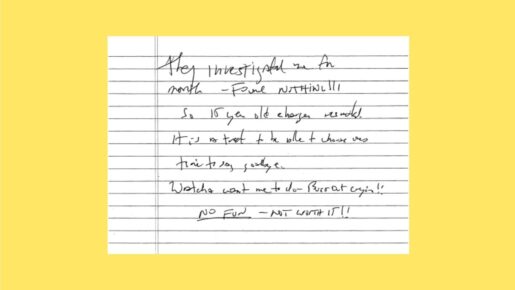 They investigated me for
month - Found NOTHING!!!
So year old charges resulted.
It is a treat to be able to choose
time to say goodbye.
Watcha want me to do - Burst out cryin!!
NO FUN - NOT WORTH IT!!